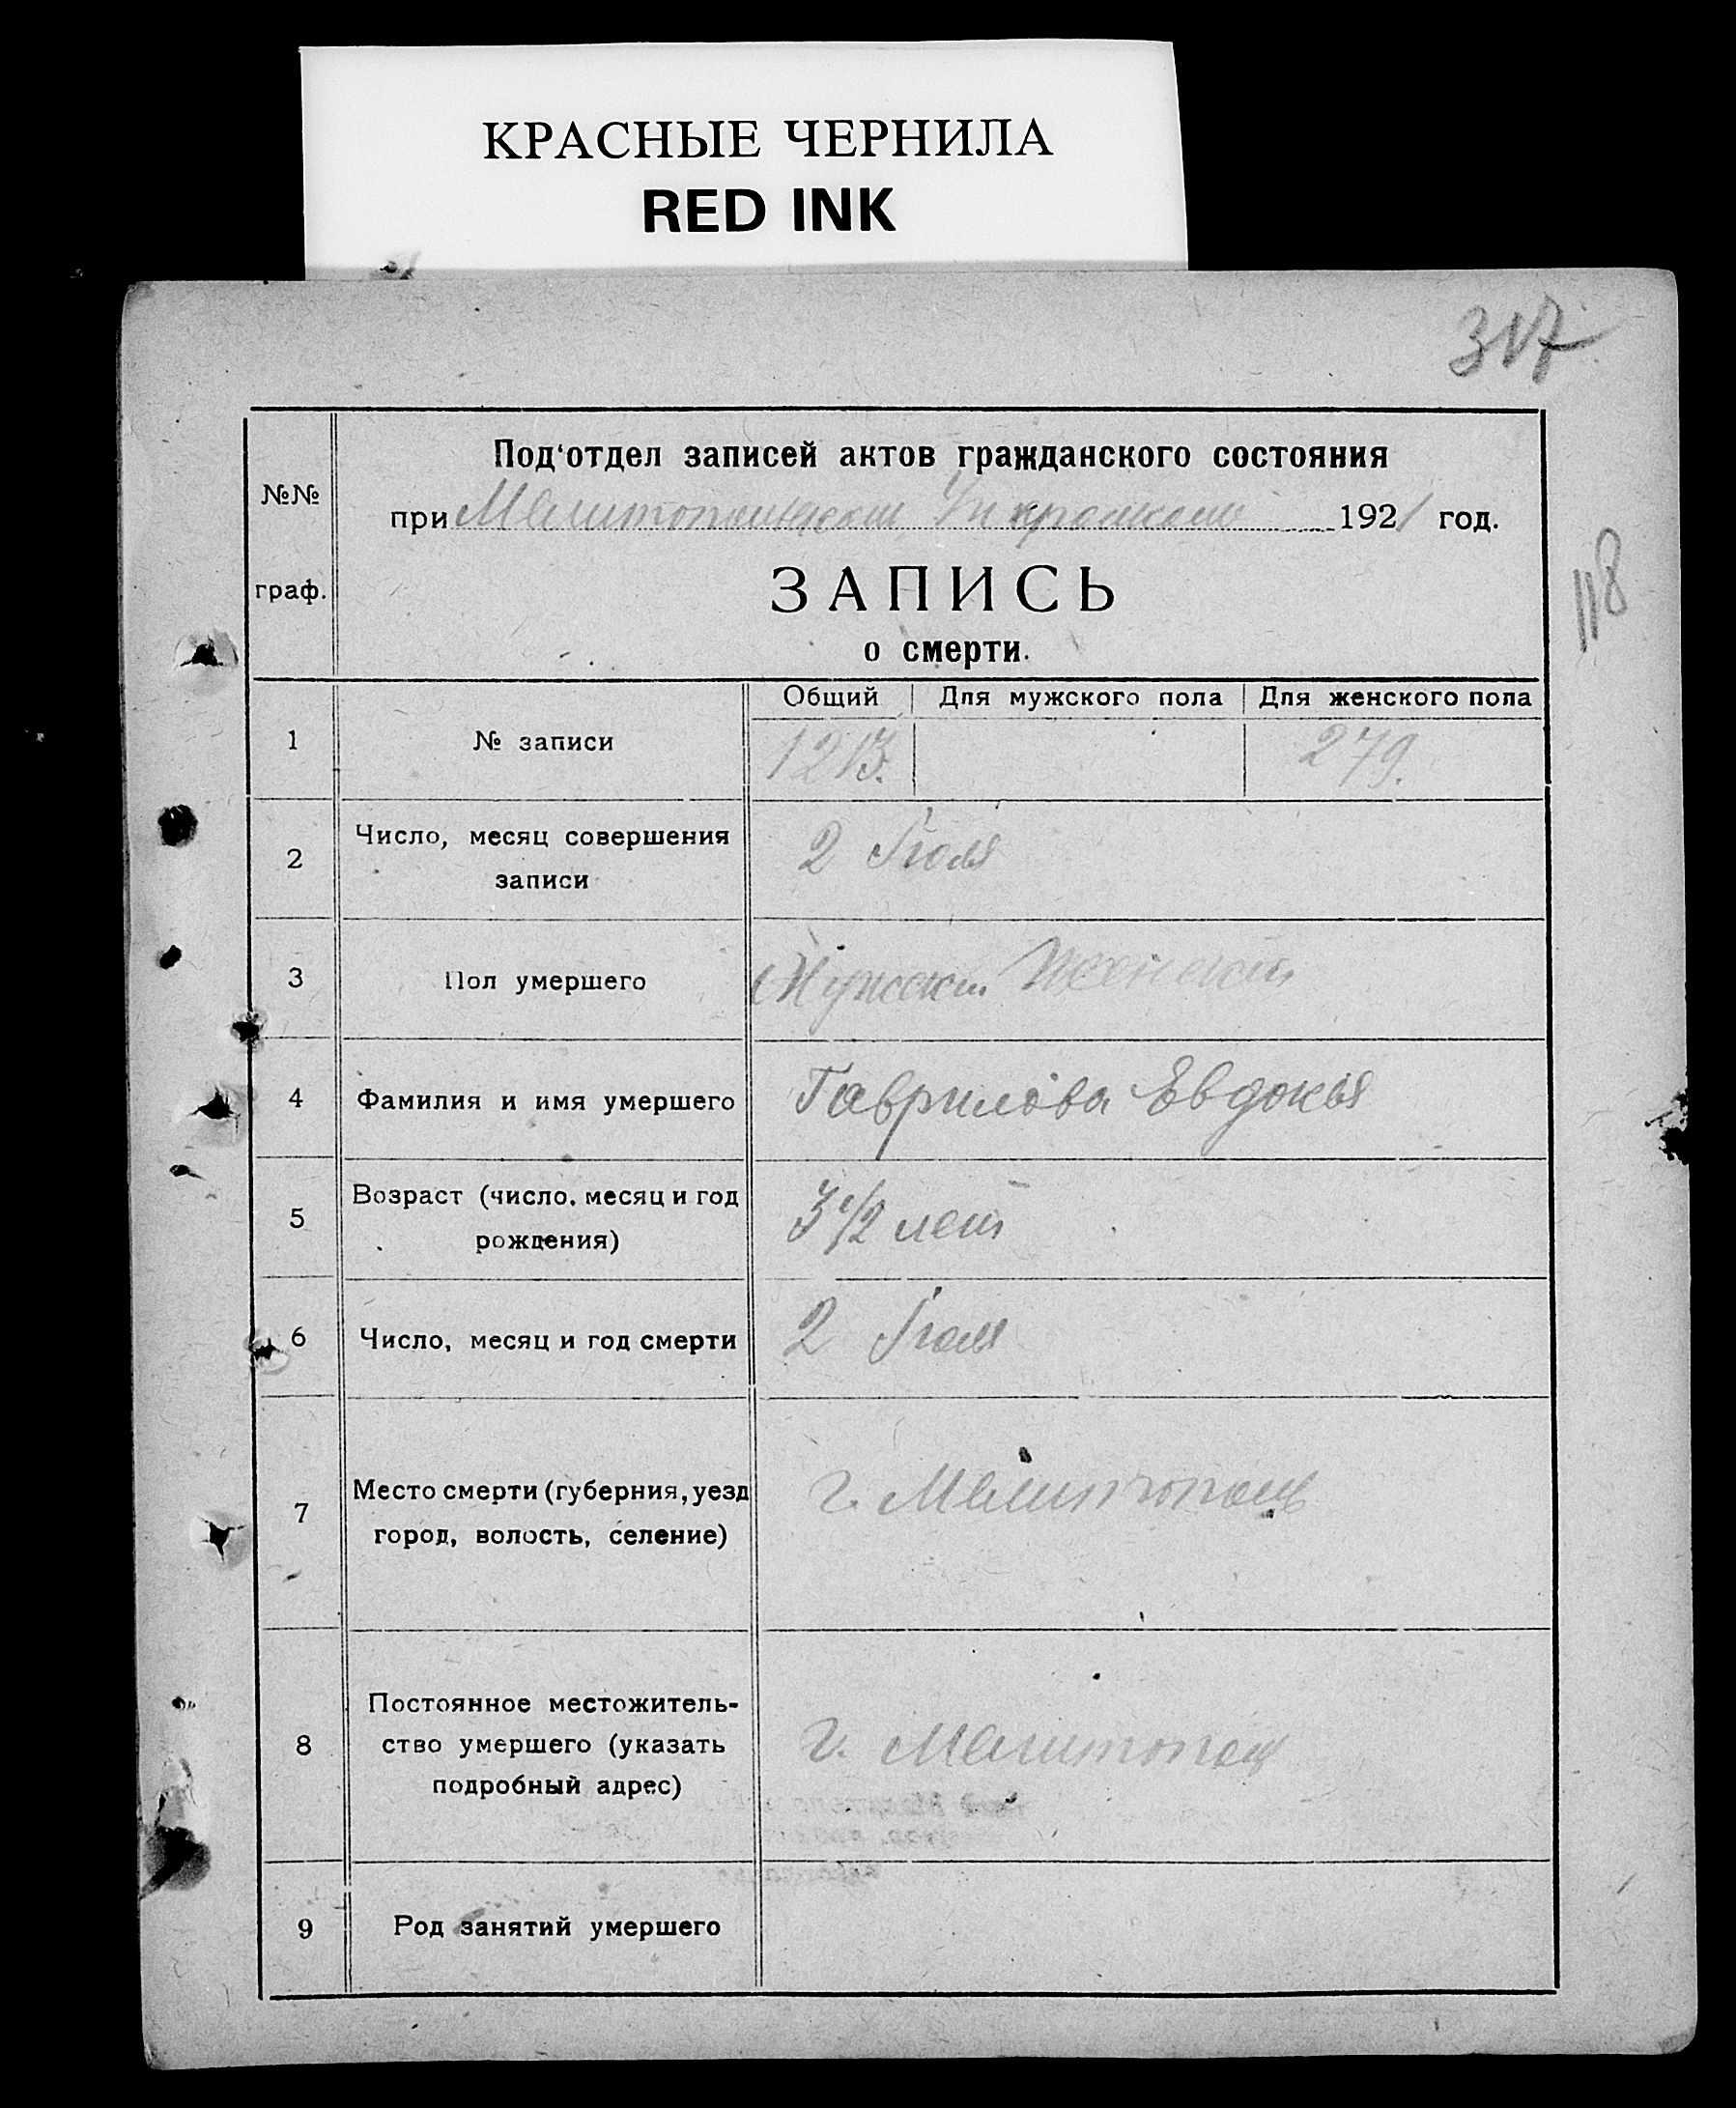 КРАСНЫЕ ЧЕРНИЛА
RED INK
317
Под'отдел записей актов гражданского состояния
№№
при Мелитопольском 1921 год.
118
граф.
ЗАПИСЬ
о смерти.
Общий Для мужского пола Для женского пола
1 № записи 1213. 279.
2 Число, месяц совершения 2 Июля
записи
3 Пол умершего Мужской Женский
4 Фамилия и имя умершего Гаврилова Евдокия
5 Возраст (число, месяц и год 3 1/2 лет
рождения)
6 Число, месяц и год смерти 2 Июля
7 Место смерти (губерния, уезд г. Мелитополь
город, волость, селение)
Постоянное местожитель-
8 ство умершего (указать г. Мелитополь
подробный адрес)
9 Род занятий умершего